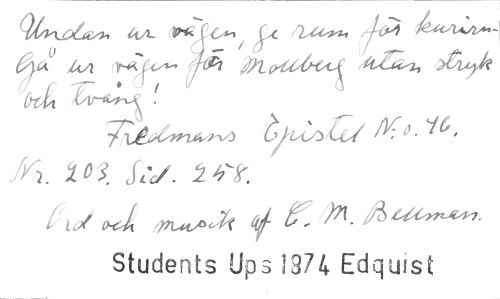 Undan ur vägen, ge rum för kurirn
Gå ur vägen för Mollberg utan stryk
och tvång!
Fredmans Epistel N:o. 46.
Nr. 203. Sid. 258.
Ord och musik af C. M. Bellman.
Students Ups 1874 Edquist